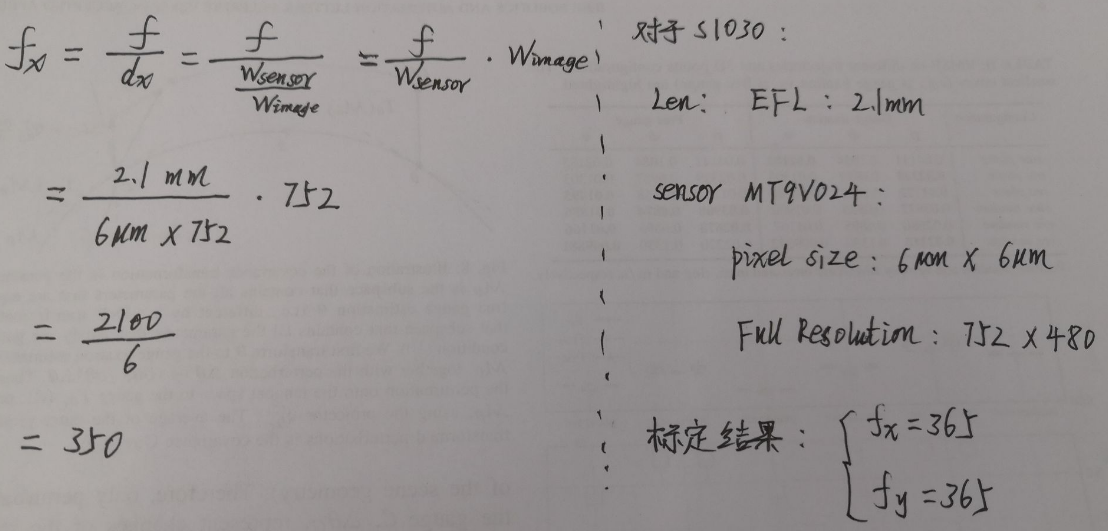 fx = f / dx = f / (Wsensor / Wimage) = f / Wsensor · Wimage
= 2.1 mm / 6μm × 752 · 752
= 2100 / 6
= 350
对于 S1030:
Len: EFL: 2.1mm
sensor MT9V024:
pixel size: 6μm × 6μm
Full Resolution: 752 × 480
标定结果: { fx = 365
fy = 365